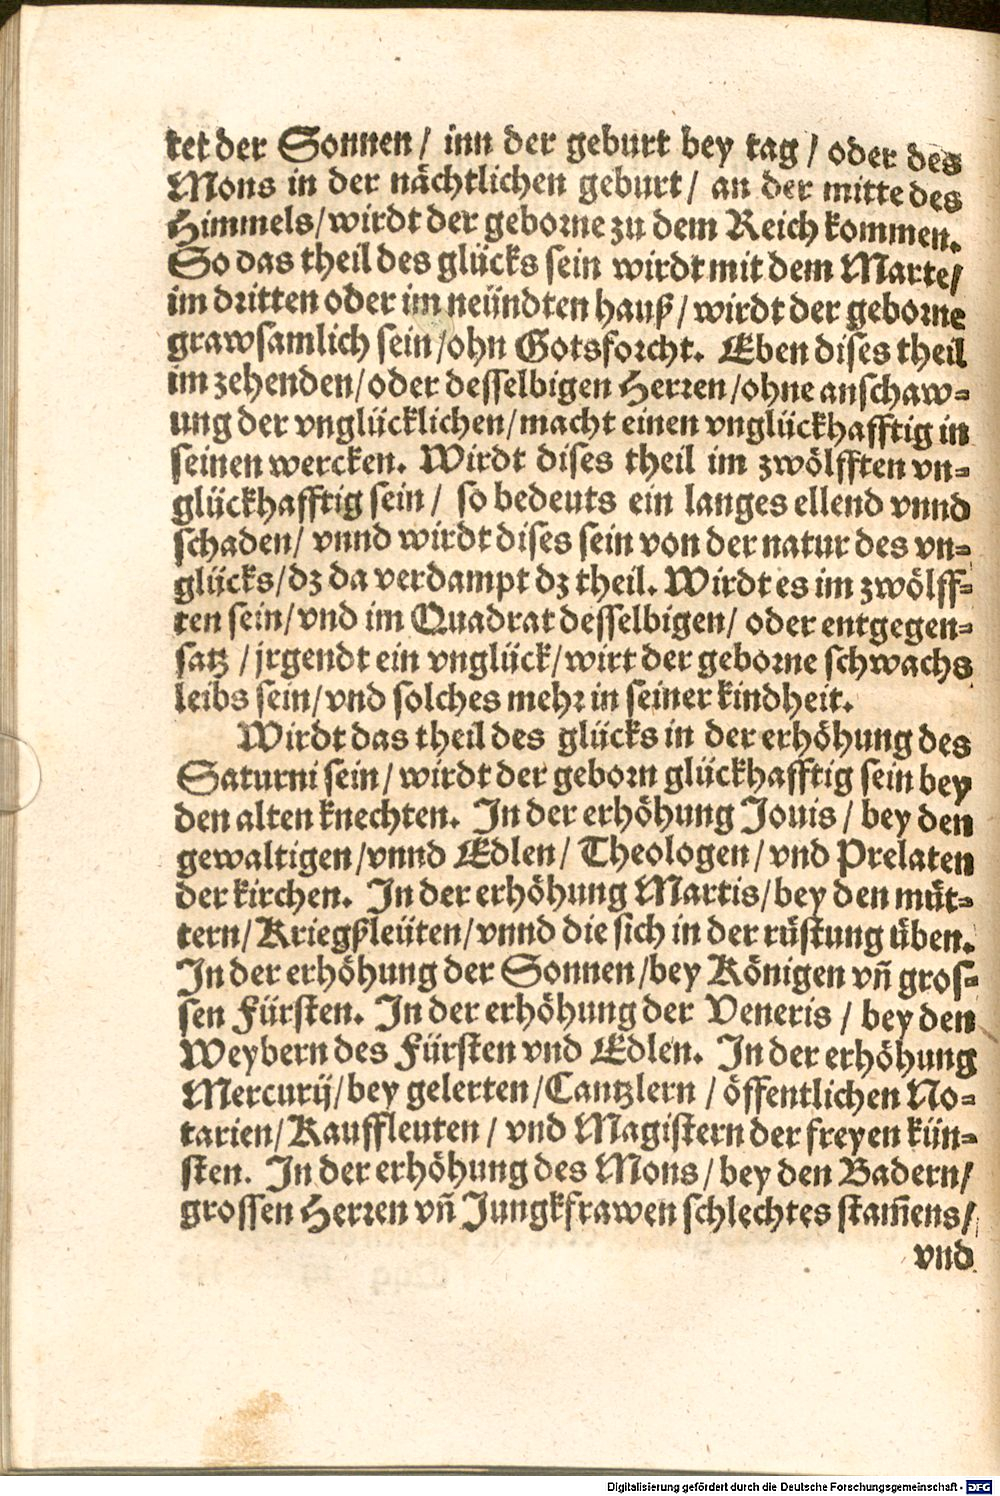 tet der Sonnen / inn der geburt bey tag / oder des
Mons in der nächtlichen geburt / an der mitte des
Himmels / wirdt der geborne zu dem Reich kommen.
So das theil des glücks sein wirdt mit dem Marte /
im dritten oder im neündten hauß / wirdt der geborne
grawsamlich sein / ohn Gotsforcht. Eben dises theil
im zehenden / oder desselbigen Herren / ohne anschaw=
ung der vnglücklichen / macht einen vnglückhafftig in
seinen wercken. Wirdt dises theil im zwölfften vn=
glückhafftig sein / so bedeuts ein langes ellend vnnd
schaden / vnnd wirdt dises sein von der natur des vn=
glücks / dz da verdampt dz theil. Wirdt es im zwölff=
ten sein / vnd im Quadrat desselbigen / oder entgegen=
satz / jrgendt ein vnglück / wirt der geborne schwachs
leibs sein / vnd solches mehr in seiner kindheit.
Wirdt das theil des glücks in der erhöhung des
Saturni sein / wirdt der geborn glückhafftig sein bey
den alten knechten. In der erhöhung Jouis / bey den
gewaltigen / vnnd Edlen / Theologen / vnd Prelaten
der kirchen. In der erhöhung Martis / bey den müt=
tern / Kriegßleüten / vnnd die sich in der rüstung üben.
In der erhöhung der Sonnen / bey Königen vñ gros=
sen Fürsten. In der erhöhung der Veneris / bey den
Weybern des Fürsten vnd Edlen. In der erhöhung
Mercurij / bey gelerten / Cantzlern / öffentlichen No=
tarien / Kauffleuten / vnd Magistern der freyen kün=
sten. In der erhöhung des Mons / bey den Badern /
grossen Herren vñ Jungkfrawen schlechtes stam̃ens /
vnd
Digitalisierung gefördert durch die Deutsche Forschungsgemeinschaft - DFG